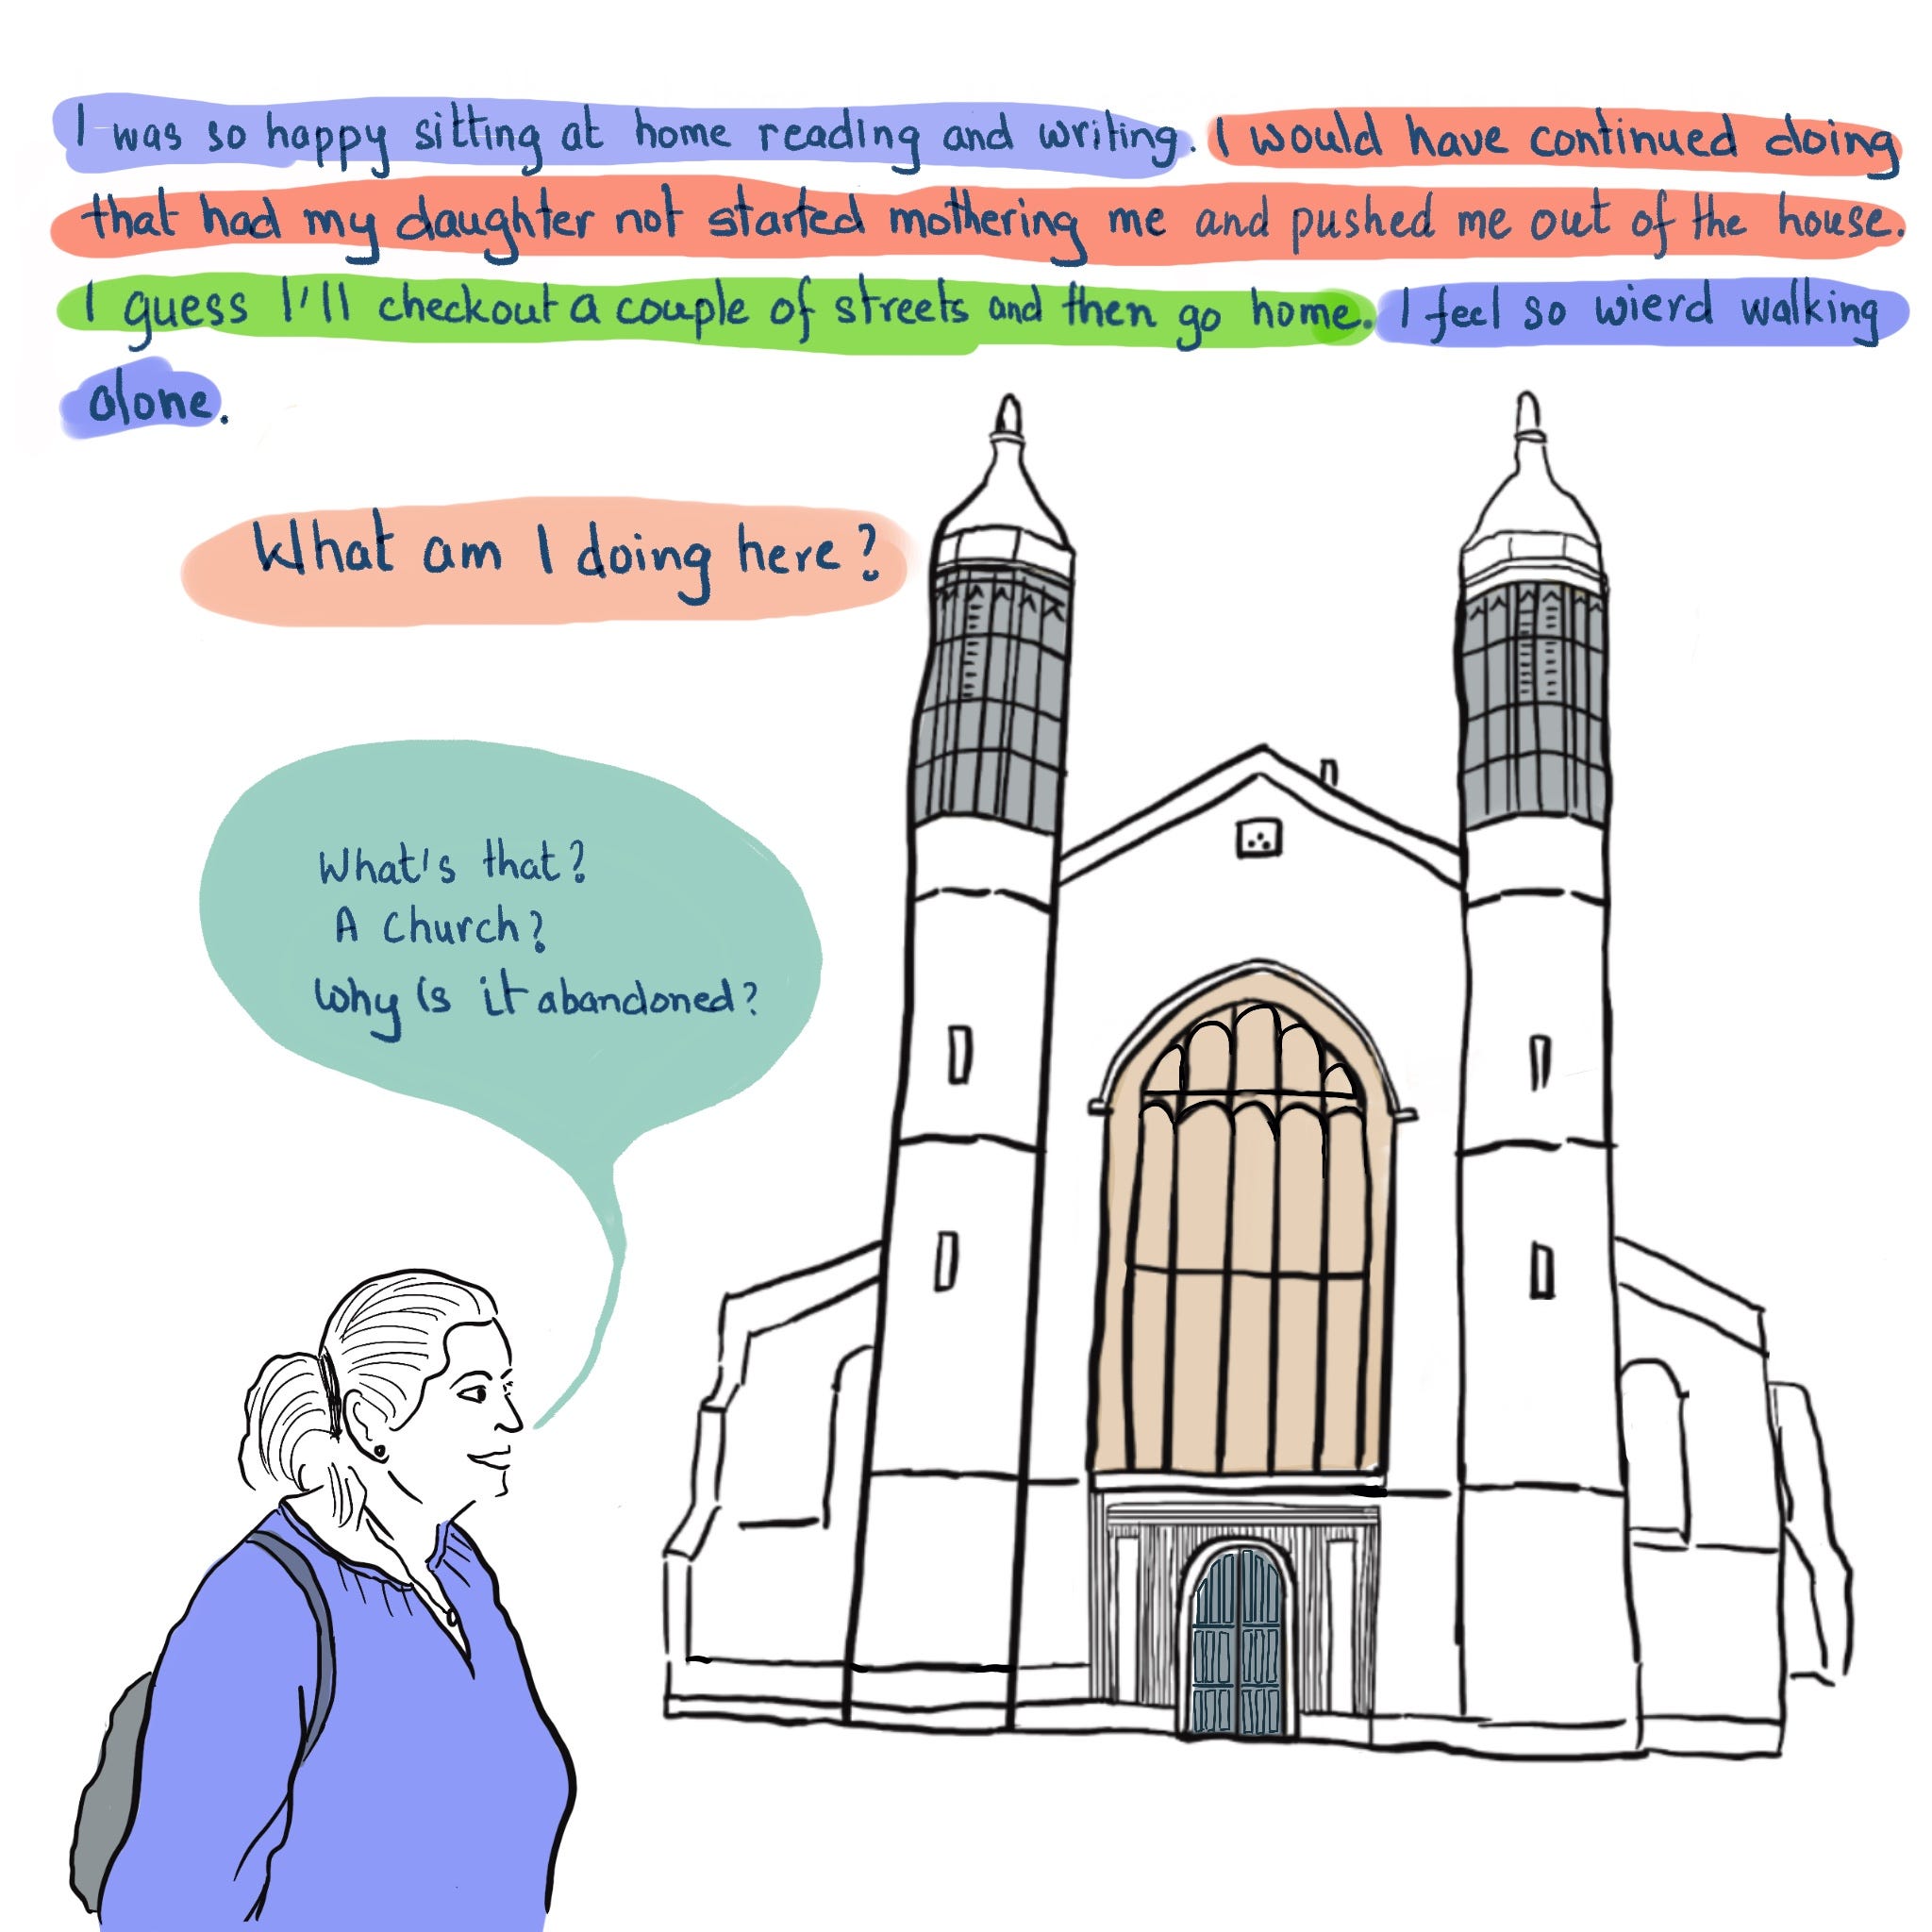 I was so happy sitting at home reading and writing. I would have continued doing
that had my daughter not started mothering me and pushed me out of the house.
I guess I'll checkout a couple of streets and then go home. I feel so wierd walking
alone.
What am I doing here?
What's that?
A church?
Why is it abandoned?